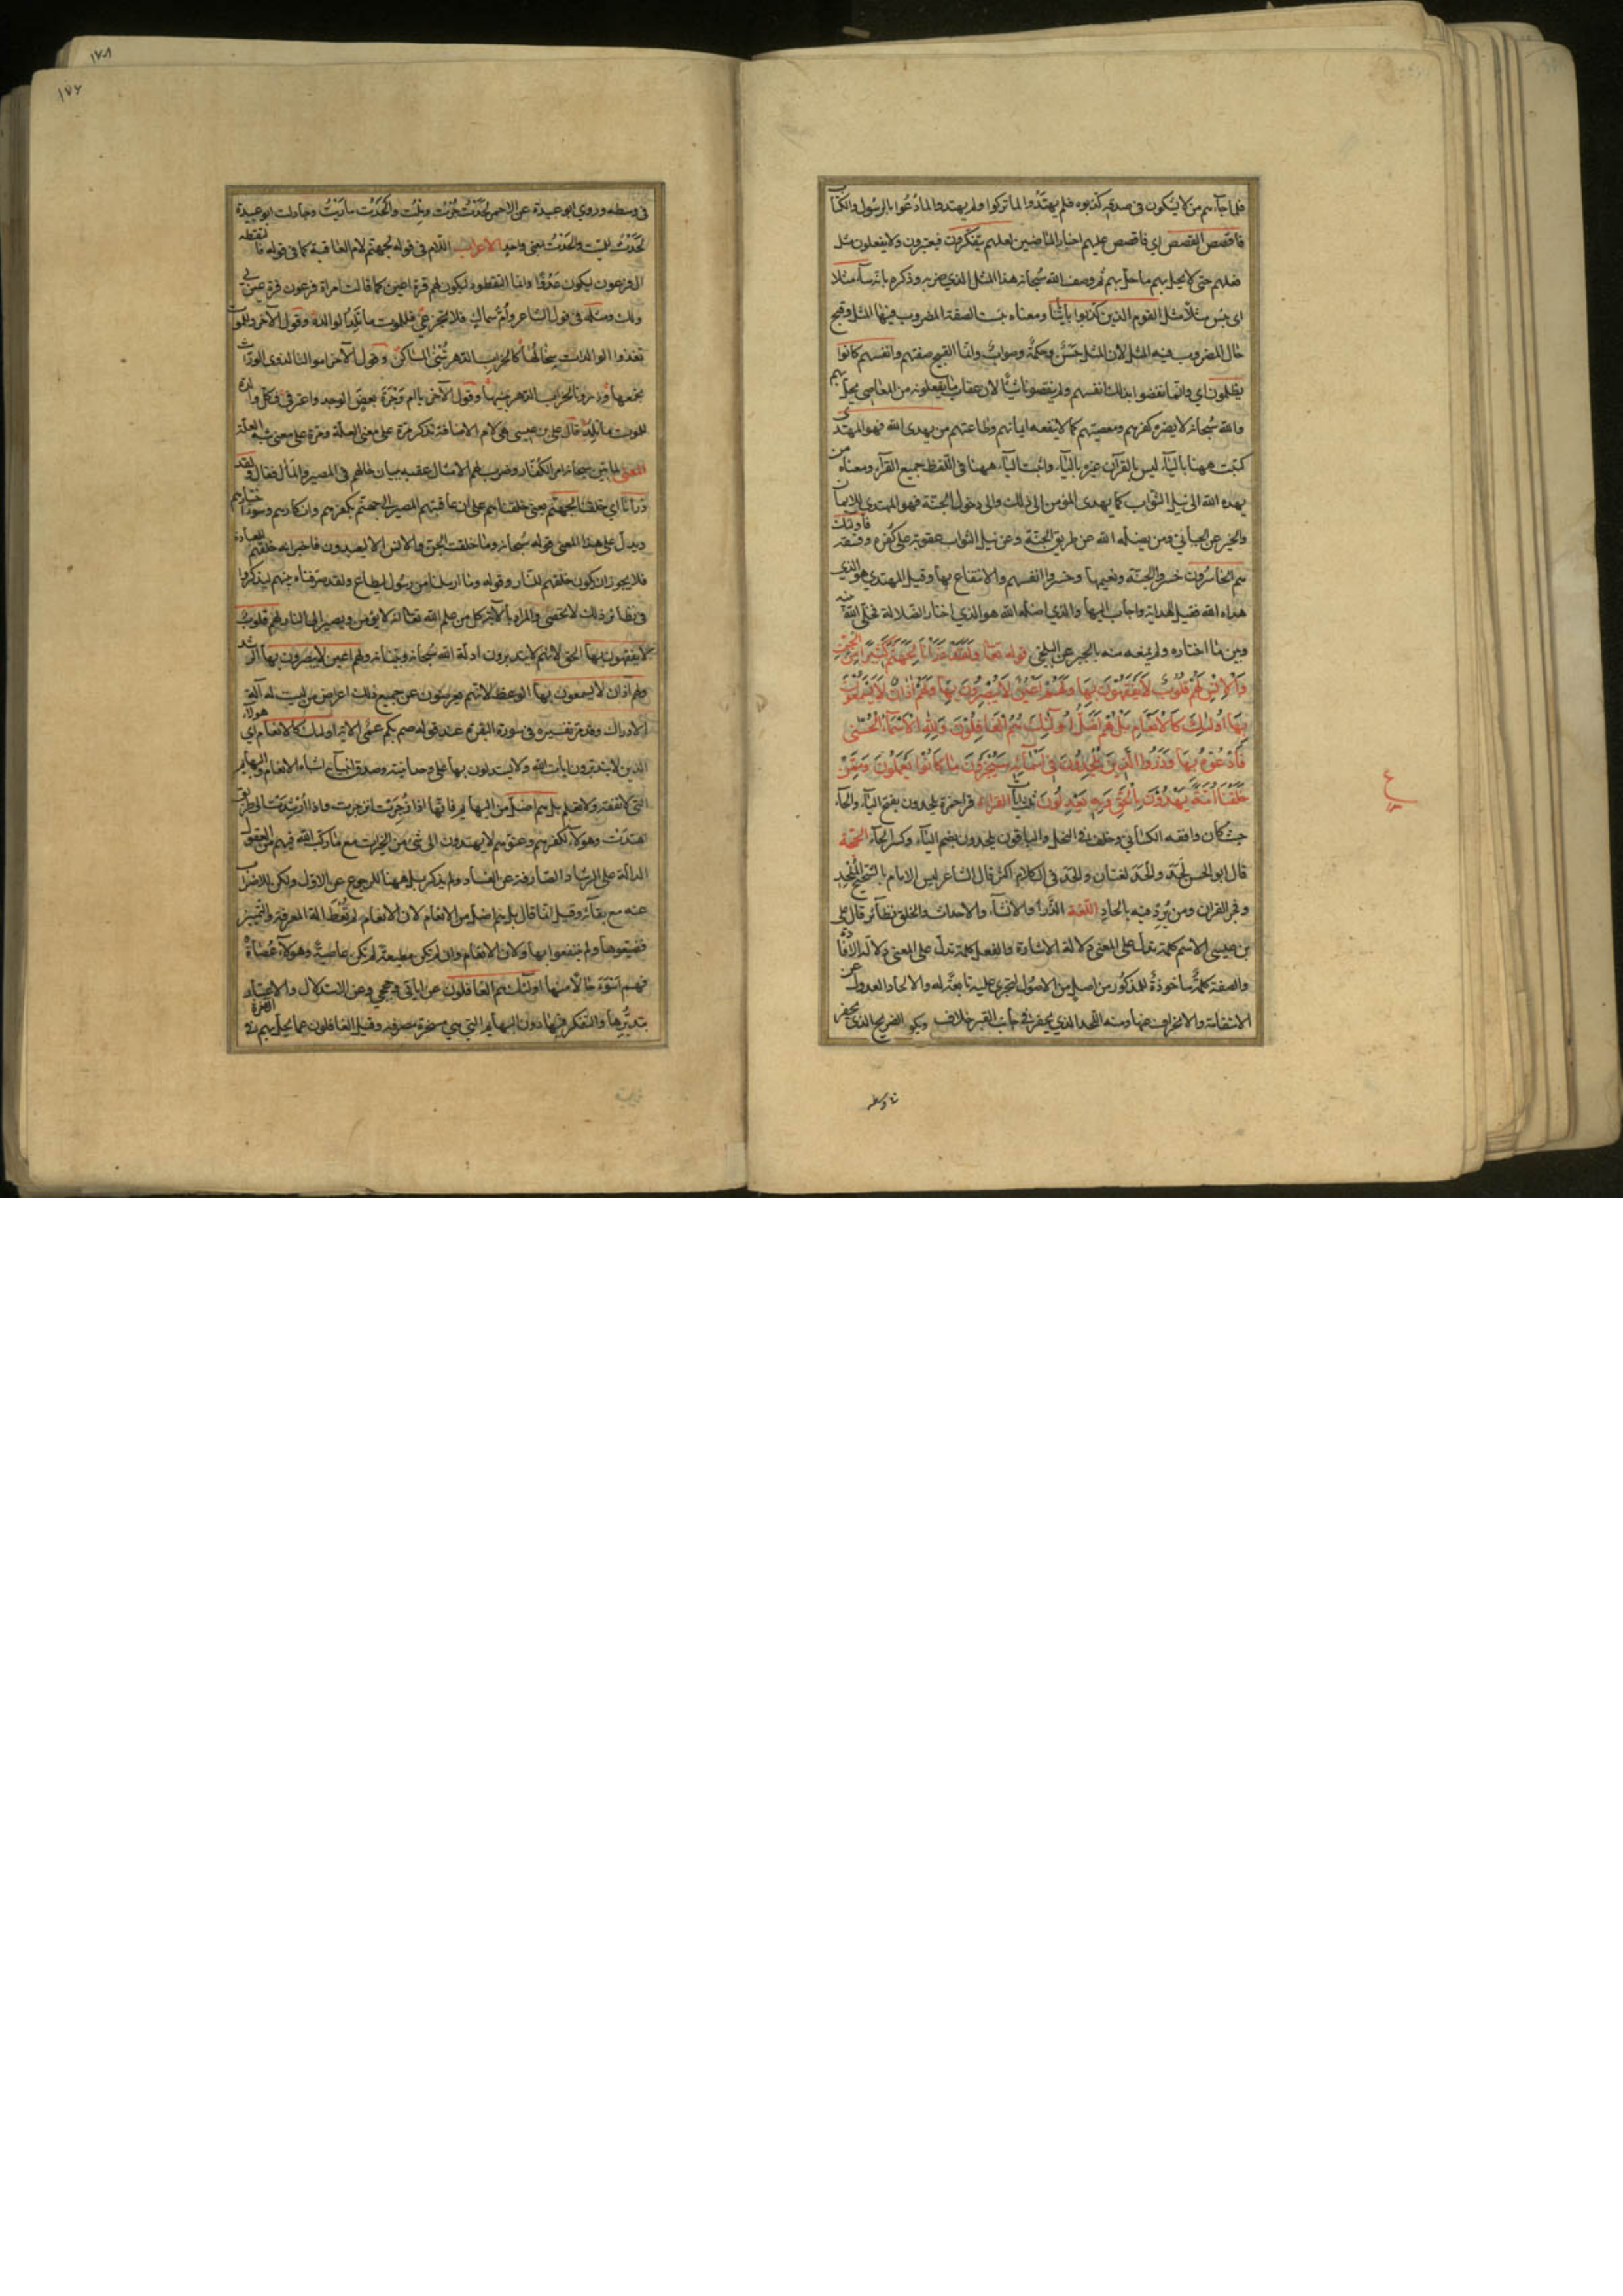 فلما جآءهم من لا يشكون في صدقه كذبوه فلم يهتدوا لما تركوا ولم يهتدوا لما دعوا بالرسول والكتاب
فاقصص القصص اي فاقصص عليهم اخبار الماضين لعلهم يتفكرون فيعتبرون ولا يفعلون مثل
فعلهم حتى لا يحل بهم ما حل بهم ثم وصف الله سبحانه هذا المثل الذي ضربه وذكره بانه سآء مثلا
اى بئس مثلا مثل القوم الذين كذبوا بآياتنا ومعناه بئست الصفة المضروب فيها المثل وقبح
حال المضروب فيه المثل لان المثل حسن وحكمة وصواب وانما القبيح صفتهم وانفسهم كانوا
يظلمون اي وانما نقصوا بذلك انفسهم ولم ينقصونا شيئا لان عقاب ما يفعلونه من المعاصى يحل بهم
والله سبحانه لا يضره كفرهم ومعصيتهم كما لا ينفعه ايمانهم وطاعتهم من يهدى الله فهو المهتدى
كتبت ههنا باليآء ليس بالقرآن غيره باليآء واثبت اليآء ههنا في اللفظ جميع القرآء ومعناه من
يهده الله الى نيل الثواب كما يهدى المؤمن الى ذلك والى دخول الجنة فهو المهتدى للايمان
والخير عن الجبائي ومن يضلله الله عن طريق الجنة وعن نيل الثواب عقوبة على كفره وفسقه فاولئك
هم الخاسرون خسروا الجنة ونعيمها وخسروا انفسهم والانتفاع بها وقيل المهتدي هو الذي
هداه الله فقبل الهداية واجاب اليها والذي اضله الله هو الذي اختار الضلالة فخلى الله بينه
وبين ما اختاره ولم يمنعه منه بالجبر عن البلخي قوله تعالى ولقد ذرانا لجهنم كثيرا من الجن
والانس لهم قلوب لا يفقهون بها ولهم اعين لا يبصرون بها ولهم اذان لا يسمعون
بها اولئك كالانعام بل هم اضل اولئك هم الغافلون ولله الاسمآء الحسنى
فادعوه بها وذروا الذين يلحدون في اسمآئه سيجزون ما كانوا يعملون وممن
خلقنا امة يهدون بالحق وبه يعدلون القراءة قرا حمزة يلحدون بفتح اليآء والحآء
حيث كان وافقه الكسائي وخلف في النحل والباقون يلحدون بضم اليآء وكسر الحآء الحجة
قال ابو الحسن لحد والحد لغتان والحد في الكلام اكثر قال الشاعر ليس الامام بالشحيح الملحد
وفي القران ومن يرد فيه بالحاد اللغة الذرأ والانشآء والاحداث والخلق نظآئر قال على
بن عيسى الاسم كلمة تدل على المعنى دلالة الاشارة والفعل كلمة تدل على المعنى دلالة الافادة
والصفة كلمة ماخوذة للمذكور من اصل من الاصول لتجرى عليه تابعة له والالحاد العدول عن
الاستقامة والانحراف عنها ومنه اللحد الذي يحفر في جانب القبر خلاف الضريح الذي يحفر
في وسطه
في وسطه وروي ابو عبيدة عن الاحمر لحدت جرت وملت والحدت ماريت وجادلت ابو عبيدة
لحدت للميت والحدت بمعنى واحد الاعراب اللام في قوله لجهنم لام العاقبة كما في قوله فالتقطه
ال فرعون ليكون لهم عدوا وانما التقطوه ليكون لهم قرة اعين كما قالت امراة فرعون قرة عين لي
ولك ومثله في قول الشاعر وام سماك فلا تجزعي فللموت ما تلد الوالدة وقول الآخر وللموت
تغذوا الوالدات سخالها كما لخراب الدهر تبنى المساكن وقول الآخر اموالنا لذوى الوراث
نجمعها ودورنا لخراب الدهر نبنيها وقول الآخر يا ام وجرة بعض الوجد واعترفي فكل والدة
للموت ما تلد قال على بن عيسى هي لام الاضافة تذكر مرة على معنى العلة ومرة على معنى شبه العلة
المعنى لما بين سبحانه امر الكفار وضرب لهم الامثال عقبه ببيان حالهم في المصير والمآل فقال ولقد
ذرانا اي خلقنا لجهنم يعنى خلقناهم على ان عاقبتهم المصير الى جهنم بكفرهم وانكارهم وسوء اختيارهم
ويدل على هذا المعنى قوله سبحانه وما خلقت الجن والانس الا ليعبدون فاخبر انه خلقهم للعبادة
فلا يجوز ان يكون خلقهم للنار وقوله وما ارسلنا من رسول الا ليطاع ولقد صرفناه بينهم ليذكروا
في نظائر ذلك لا تحصى والمراد بالآية كل من علم الله تعالى انه لا يؤمن ويصير الى النار لهم قلوب
لا يفقهون بها الحق لانهم لا يتدبرون ادلة الله سبحانه وبيناته ولهم اعين لا يبصرون بها الرشد
ولهم آذان لا يسمعون بها الوعظ لانهم يعرضون عن جميع ذلك اعراض من ليست له آلة
الادراك وقد مر تفسيره في سورة البقرة عند قوله صم بكم عمي الآية اولئك كالانعام اي هولآء
الذين لا يتدبرون ايات الله ولا يستدلون بها على وحدانيته وصدق انبيآئه اشباه الانعام والبهآئم
التي لا تفقه ولا تعلم بل هم اضل من البهآئم فانها اذا زجرت انزجرت واذا ارشدت الى طريق
اهتدت وهولآء لكفرهم وعتوهم لا يهتدون الى شئ من الخيرات مع ما ركب الله فيهم من العقول
الدالة على الرشاد الصارفة عن الفساد ولم يذكر بل ههنا للرجوع عن الاول ولكن للاضراب
عنه مع بقآئه وقيل انما قال بل هم اضل من الانعام لان الانعام لم تعط الة المعرفة والتمييز
فضيعوها ولم ينتفعوا بها ولان الانعام وان لم تكن مطيعة لم تكن عاصية وهولآء عصاة
فهم اسوء حالا منها اولئك هم الغافلون عن اياتي وحججي وعن الاستدلال والاعتبار
بتدبرها والتفكر فيها دون البهآئم التي هي مسخرة مصرفة وقيل الغافلون عما يحل بهم في الآخرة